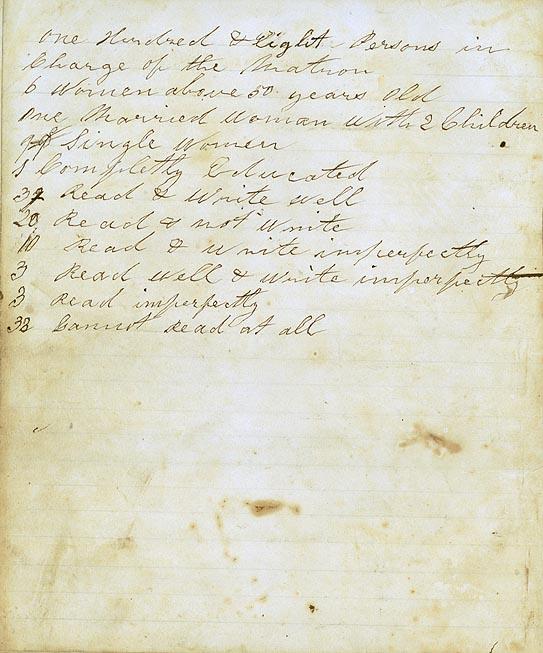 One Hundred & Eight Persons in
Charge of the Matron
6 Women above 50 years Old
One Married Woman with 2 Children
Single Women
1 Completly Educated
Read & Write well
20 Read & not Write
10 Read & Write imperfectly
3 Read well & Write imperfectly
3 Read imperfectly
38 Cannot Read at all